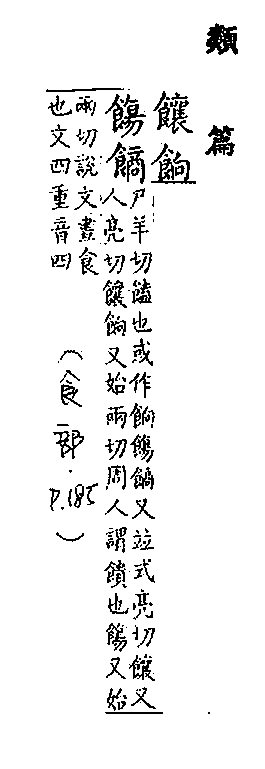 類篇
饟餉
餳䭥
尸羊切饁也或作餉餳䭥又並式亮切饟又
人亮切饟餉又始兩切周人謂饋也餳又始
兩切說文晝食
也文四重音四
(食部.P.185)